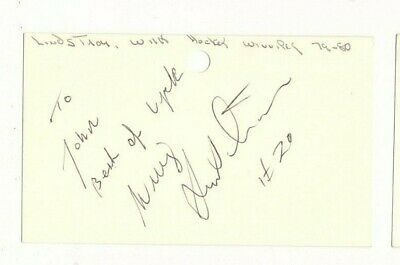 LINDSTROM, Willy Hockey Winnipeg 79-80
To
John
Best of Luck
Willy Lindstrom
# 20